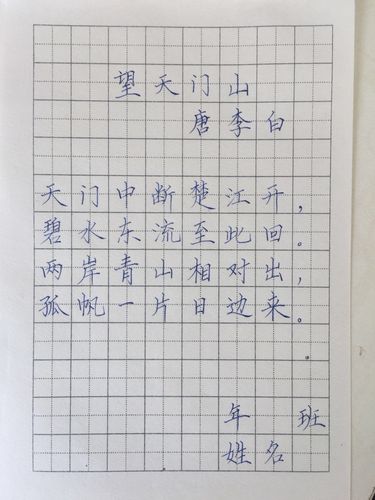 望天门山
唐李白
天门中断楚江开，
碧水东流至此回。
两岸青山相对出，
孤帆一片日边来。
年 班
姓名